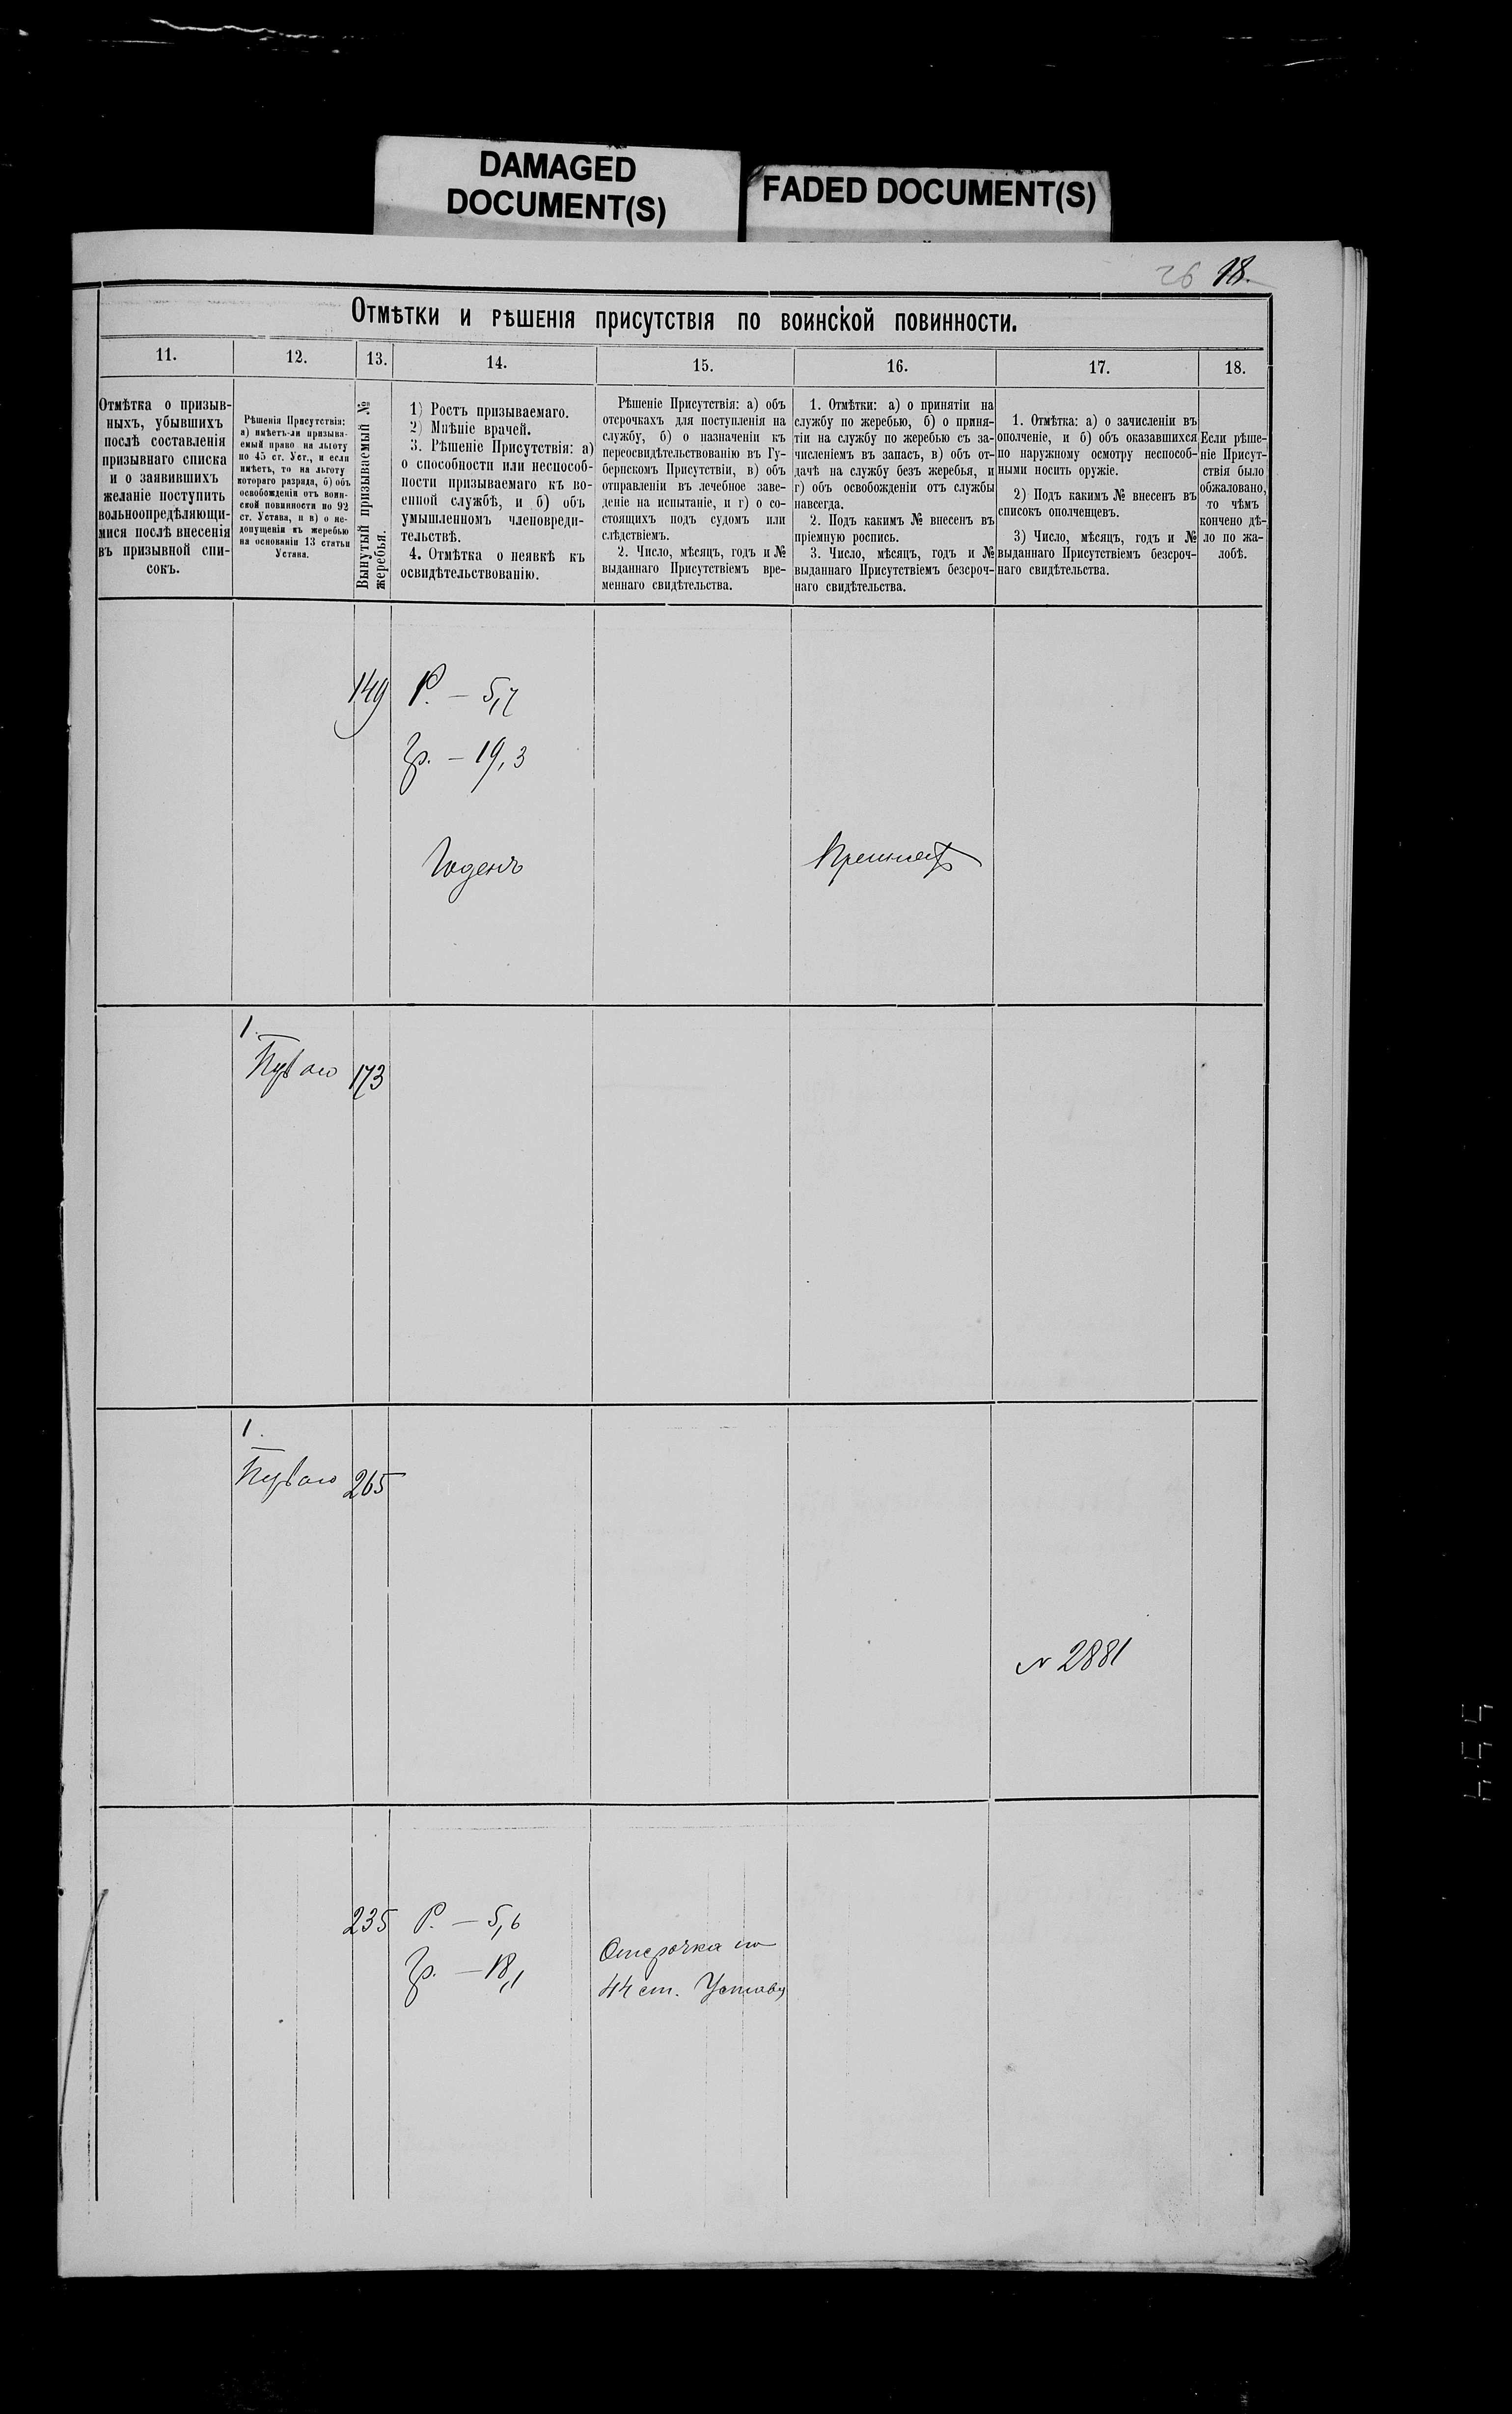 DAMAGED
DOCUMENT(S)
FADED DOCUMENT(S)
26 18.
Отмѣтки и рѣшенія присутствія по воинской повинности.
11.
12.
13.
14.
15.
16.
17.
18.
Отмѣтка о призыв-
ныхъ, убывшихъ
послѣ составленія
призывнаго списка
и о заявившихъ
желаніе поступить
вольноопредѣляющи-
мися послѣ внесенія
въ призывной спи-
сокъ.
Рѣшенія Присутствія:
а) имѣетъ-ли призыва-
емый право на льготу
по 45 ст. Уст., и если
имѣетъ, то на льготу
котораго разряда, б) объ
освобожденіи отъ воин-
ской повинности по 92
ст. Устава, и в) о не-
допущеніи къ жеребью
на основаніи 13 статьи
Устава.
Вынутый призываемый №
жеребья.
1) Ростъ призываемаго.
2) Мнѣніе врачей.
3. Рѣшеніе Присутствія: а)
о способности или неспособ-
ности призываемаго къ во-
енной службѣ, и б) объ
умышленномъ членовреди-
тельствѣ.
4. Отмѣтка о неявкѣ къ
освидѣтельствованію.
Рѣшеніе Присутствія: а) объ
отсрочкахъ для поступленія на
службу, б) о назначеніи къ
переосвидѣтельствованію въ Гу-
бернскомъ Присутствіи, в) объ
отправленіи въ лечебное заве-
деніе на испытаніе, и г) о со-
стоящихъ подъ судомъ или
слѣдствіемъ.
2. Число, мѣсяцъ, годъ и №
выданнаго Присутствіемъ вре-
меннаго свидѣтельства.
1. Отмѣтки: а) о принятіи на
службу по жеребью, б) о приня-
тіи на службу по жеребью съ за-
численіемъ въ запасъ, в) объ от-
дачѣ на службу безъ жеребья, и
г) объ освобожденіи отъ службы
навсегда.
2. Подъ какимъ № внесенъ въ
пріемную роспись.
3. Число, мѣсяцъ, годъ и №
выданнаго Присутствіемъ безсроч-
наго свидѣтельства.
1. Отмѣтка: а) о зачисленіи въ
ополченіе, и б) объ оказавшихся
по наружному осмотру неспособ-
ными носить оружіе.
2) Подъ какимъ № внесенъ въ
списокъ ополченцевъ.
3) Число, мѣсяцъ, годъ и №
выданнаго Присутствіемъ безсроч-
наго свидѣтельства.
Если рѣше-
ніе Присут-
ствія было
обжаловано,
то чѣмъ
кончено дѣ-
ло по жа-
лобѣ.
149 Р. — 5,7
Гр. — 19,3
Годенъ
Принятъ
1.
173
1.
265
№ 2881
235 Р. — 5,6
Гр. — 18,1
Отсрочка по
44 ст. Устава